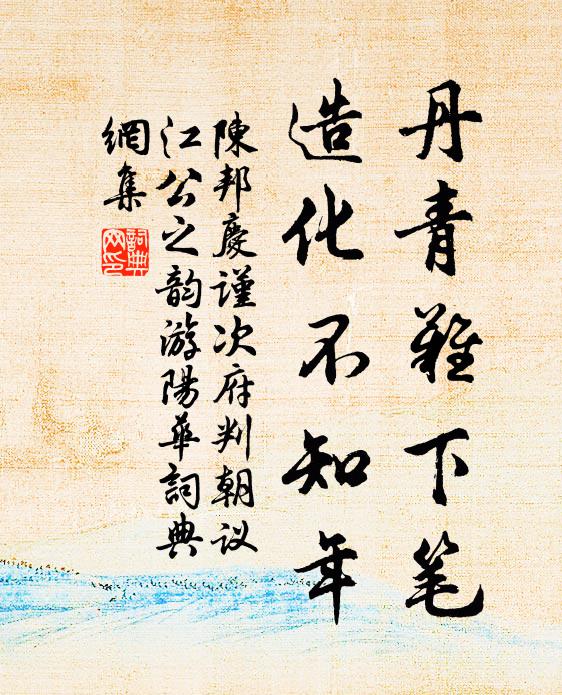 丹青难下笔
造化不知年
陳邦慶谨次府判朝议
江公之韵游陽華詞典
網集
詞典
网印